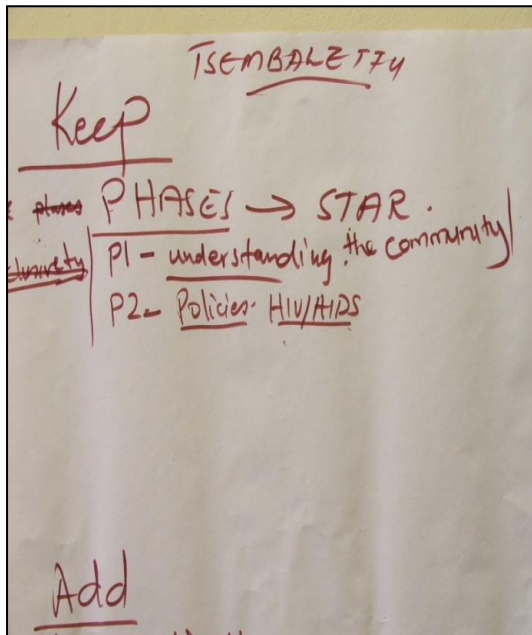 TSEMBALETFY
Keep
phases PHASES → STAR.
P1 - understanding the community
P2 - Policies - HIV/AIDS
Add